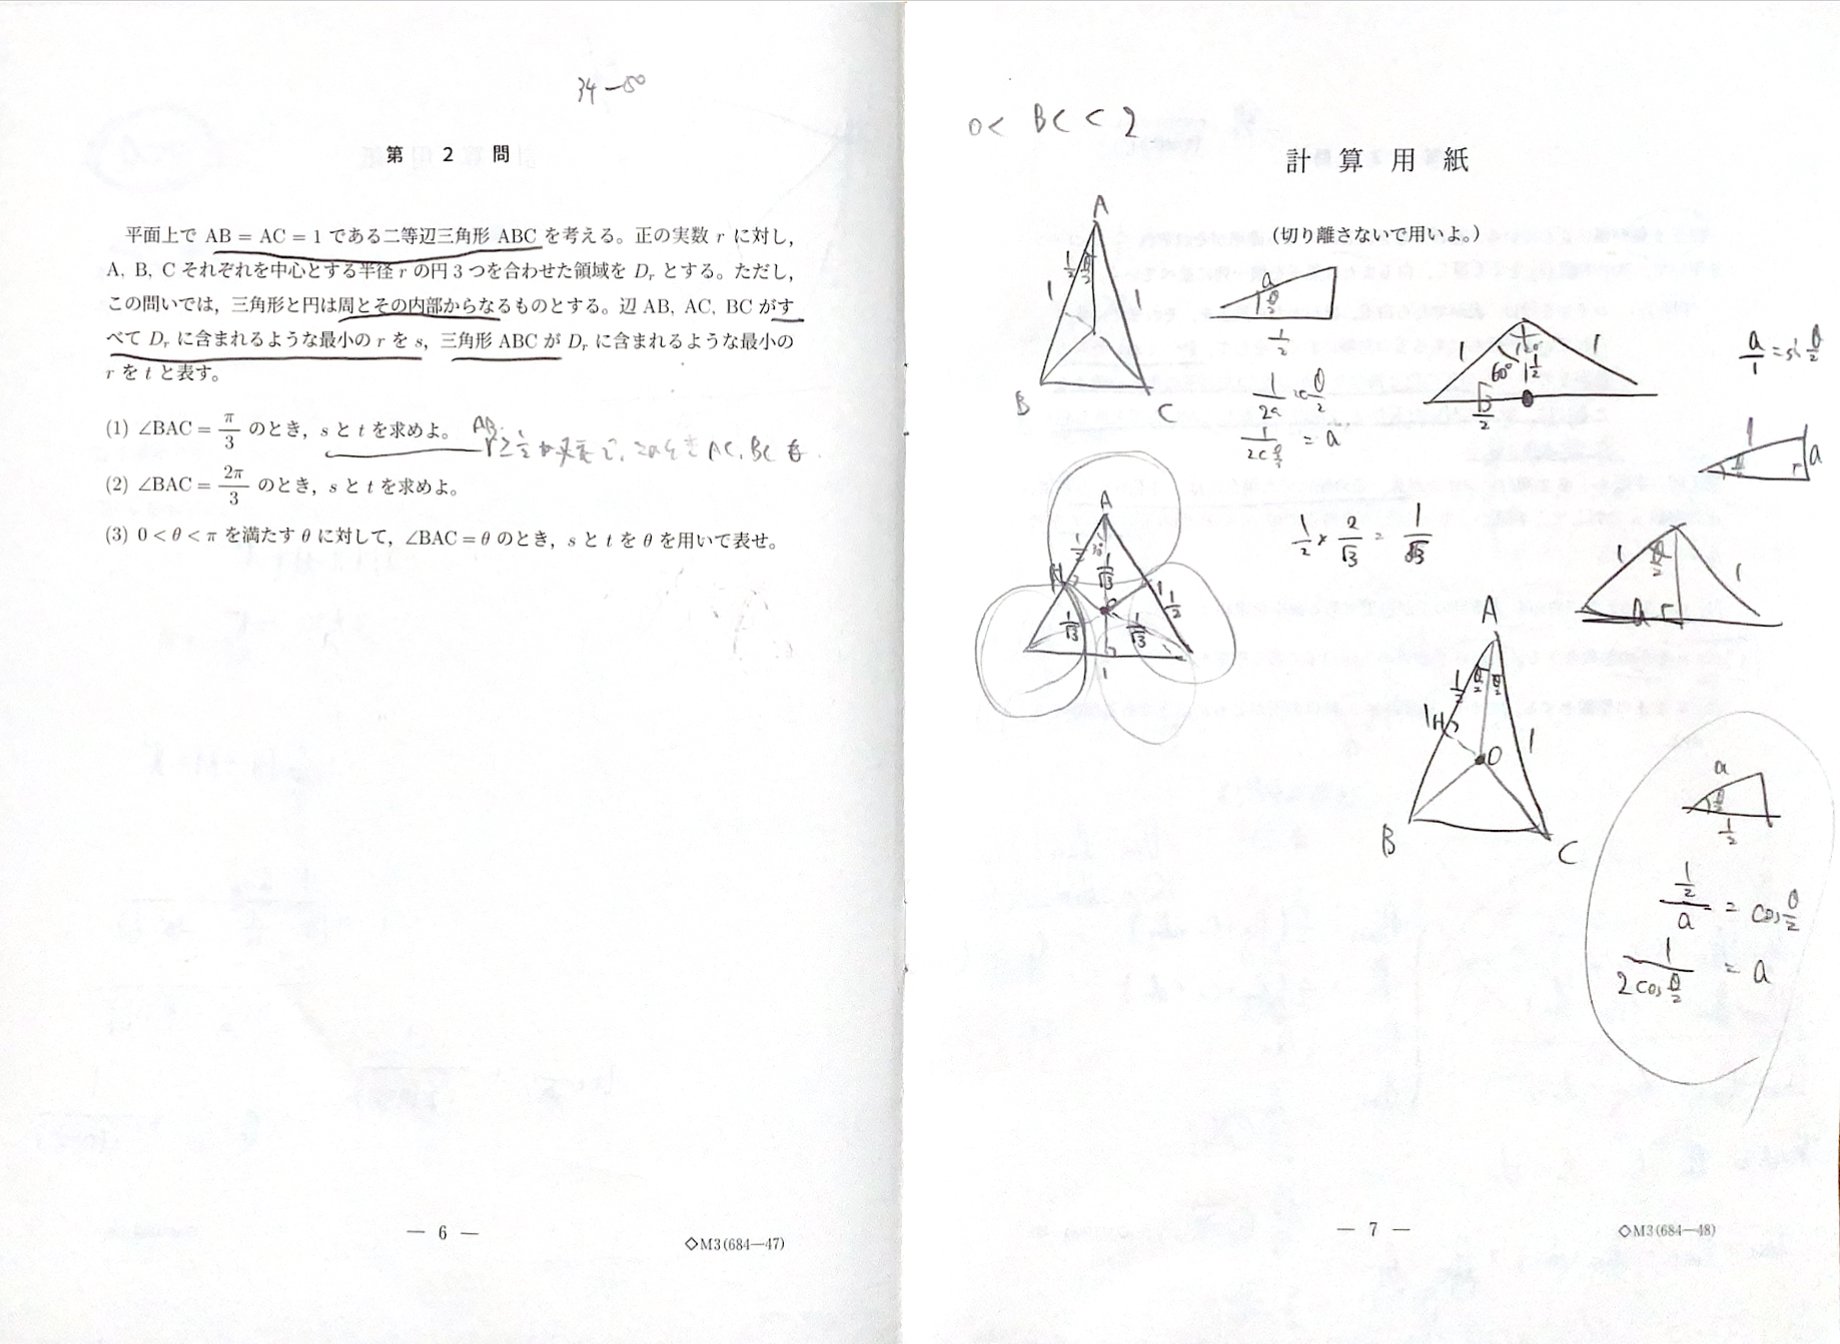 34-50
第 2 問
平面上で AB = AC = 1 である二等辺三角形 ABC を考える。正の実数 r に対し,
A, B, C それぞれを中心とする半径 r の円 3 つを合わせた領域を D_r とする。ただし,
この問いでは, 三角形と円は周とその内部からなるものとする。辺 AB, AC, BC がす
べて D_r に含まれるような最小の r を s, 三角形 ABC が D_r に含まれるような最小の
r を t と表す。
(1) ∠BAC = π/3 のとき, s と t を求めよ。
(2) ∠BAC = 2π/3 のとき, s と t を求めよ。
(3) 0 < θ < π を満たす θ に対して, ∠BAC = θ のとき, s と t を θ を用いて表せ。
— 6 —
◇M3(684—47)
0 < BC < 2
計 算 用 紙
(切り離さないで用いよ。)
A
1/2
θ/2
1
1
B
C
a
θ/2
1/2
1/2a
θ/2
= a
1
120°
1
60°
1/2
√3/2
a/1 = sin θ/2
1
a
A
1/2
1/√3
H
1/√3
1/√3
1/2
1
1/2 × 2/√3 = 1/√3
1
θ/2
1
a
A
1/2
θ/2
θ/2
1
H
O
1
B
C
a
θ/2
1/2
1/2 / a = cos θ/2
1 / 2cos θ/2 = a
— 7 —
◇M3(684—48)